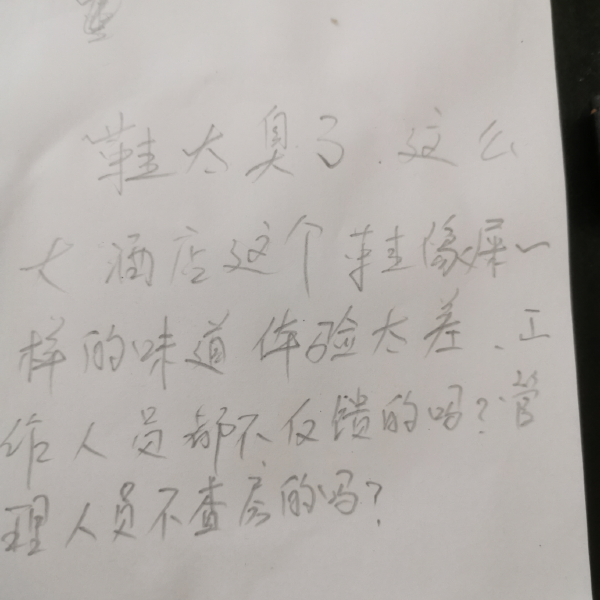 鞋太臭了.这么
大酒店这个鞋像屎一
样的味道 体验太差、工
作人员都不反馈的吗?管
理人员不查房的吗?